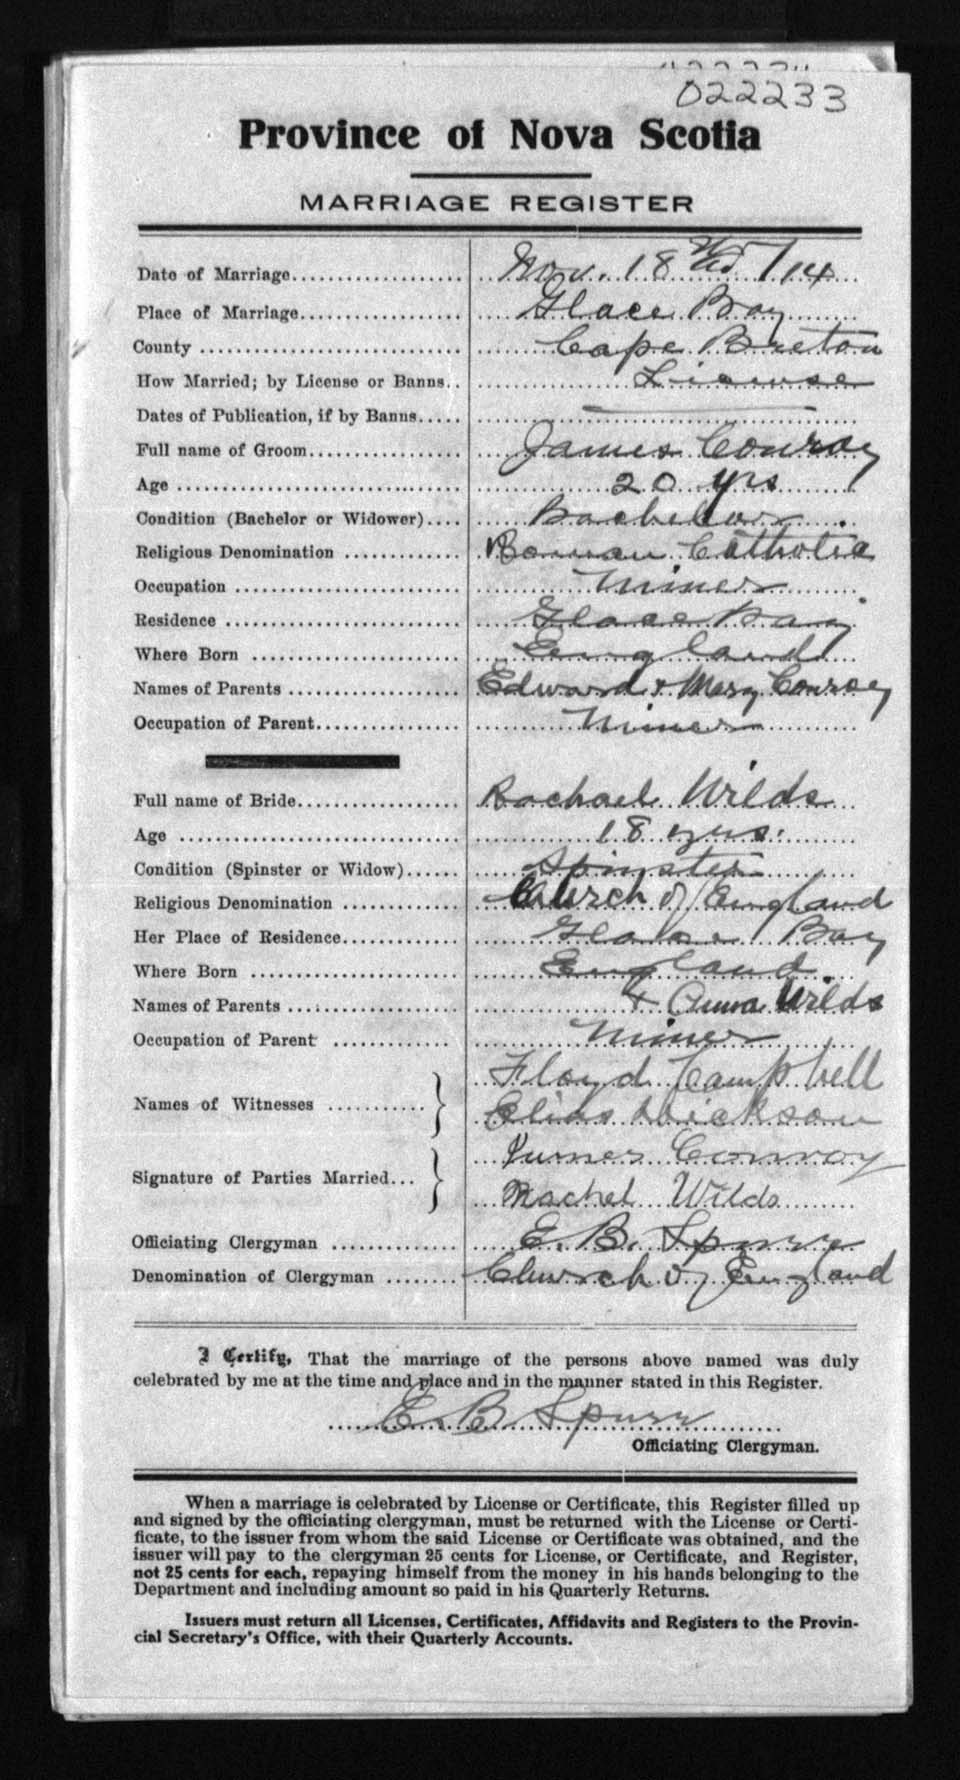 022233
Province of Nova Scotia
MARRIAGE REGISTER
Date of Marriage Nov. 18 Wed /14
Place of Marriage Glace Bay
County Cape Breton
How Married; by License or Banns License
Dates of Publication, if by Banns
Full name of Groom James Conroy
Age 20 yrs
Condition (Bachelor or Widower) Bachelor
Religious Denomination Roman Catholic
Occupation Miner
Residence Glace Bay
Where Born England
Names of Parents Edward & Mary Conroy
Occupation of Parent Miner
Full name of Bride Rachael Wilds
Age 18 yrs.
Condition (Spinster or Widow) Spinster
Religious Denomination Church of England
Her Place of Residence Glace Bay
Where Born England
Names of Parents & Anna Wilds
Occupation of Parent Miner
Names of Witnesses } Floyd Campbell
Elias Dickson
Signature of Parties Married } James Conroy
Rachel Wilds
Officiating Clergyman E. B. Spurr
Denomination of Clergyman Church of England
I Certify, That the marriage of the persons above named was duly
celebrated by me at the time and place and in the manner stated in this Register.
E. B. Spurr
Officiating Clergyman.
When a marriage is celebrated by License or Certificate, this Register filled up
and signed by the officiating clergyman, must be returned with the License or Certi-
ficate, to the issuer from whom the said License or Certificate was obtained, and the
issuer will pay to the clergyman 25 cents for License, or Certificate, and Register,
not 25 cents for each, repaying himself from the money in his hands belonging to the
Department and including amount so paid in his Quarterly Returns.
Issuers must return all Licenses, Certificates, Affidavits and Registers to the Provin-
cial Secretary's Office, with their Quarterly Accounts.